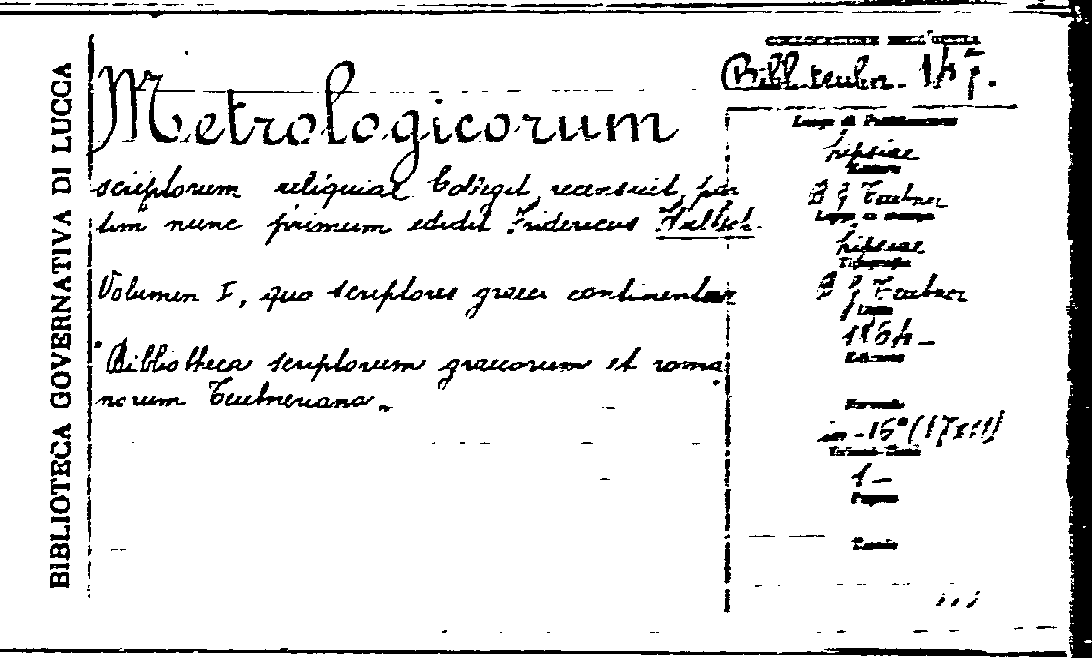 BIBLIOTECA GOVERNATIVA DI LUCCA
Metrologicorum
scriptorum reliquiae Collegit recensuit par
tim nunc primum edidit Fridericus Hultsch.
Volumen I, quo scriptores graeci continentur
"Bibliotheca scriptorum graecorum et roma
norum Teubneriana„
Bibl. teubn.
Luogo di Pubblicazione
Lipsiae
Editore
B G Teubner
Luogo di stampa
Lipsiae
Tipografia
B G Teubner
Anno
1864 –
Edizione
Formato
in-16° (17x11)
Volumi
1 –
Pagine